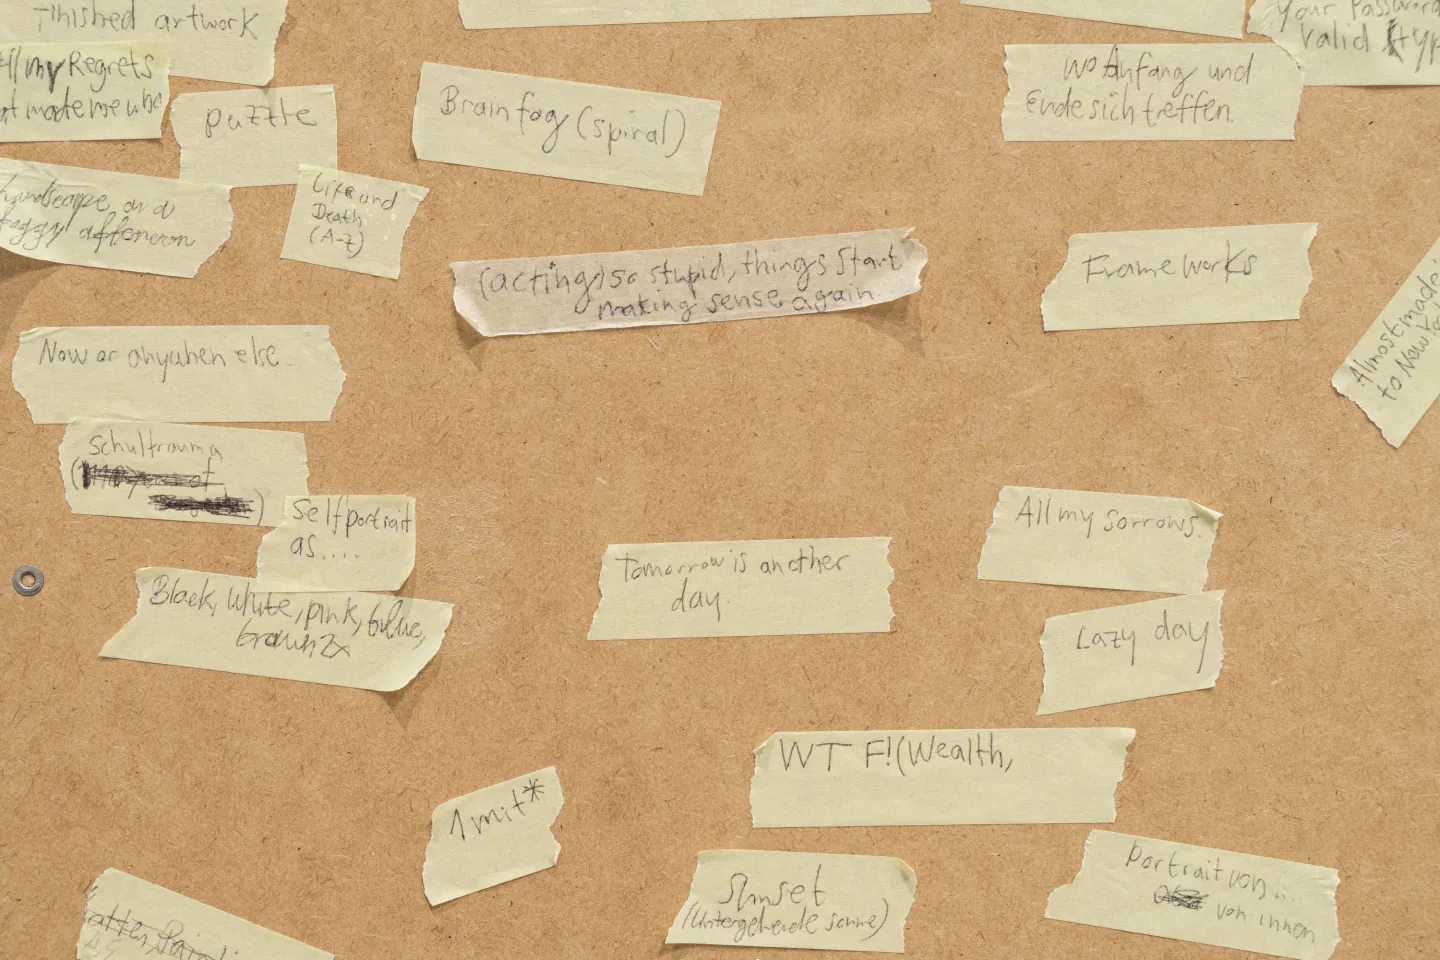 finished artwork
All my Regrets
that made me who
puzzle
Landscape on a
foggy afternoon
Life and
Death
(A-Z)
Brain fog (spiral)
Your Password
valid
wo Anfang und
Ende sich treffen.
(acting) so stupid, things start
making sense again.
Frameworks
Almost made
to New Yo
Now or anywhen else.
Schultrauma
Selfportrait
as....
Black, white, pink, blue,
brown 2x
Tomorrow is another
day.
All my sorrows.
Lazy day
WT F!(Wealth,
1 mit*
Sunset
(Untergehende sonne)
Portrait von...
von innen
after